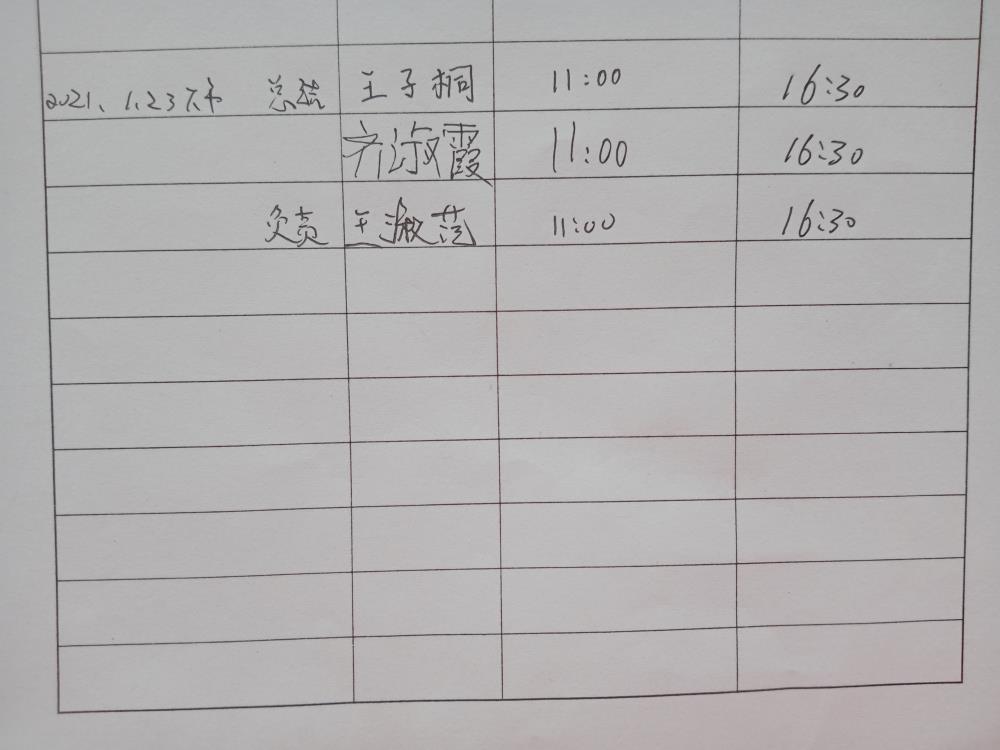 2021.1.23 王子桐 11:00 16:30
齐淑霞 11:00 16:30
王淑范 11:00 16:30